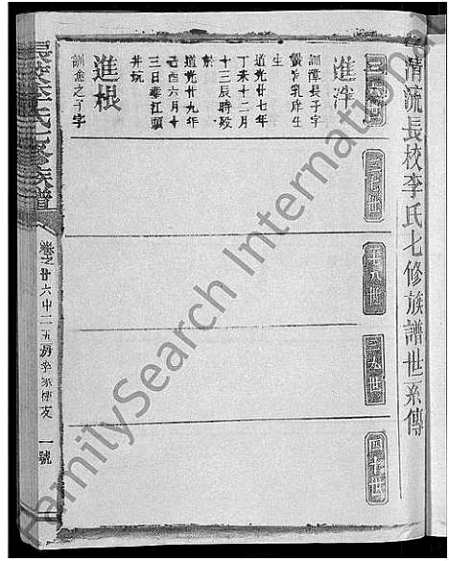 清流長校李氏七修族譜世系傳
三十六世
三十七世
三十八世
三十九世
四十世
進泮
訓
長子字
生
道光廿七年
丁未十二月
十三辰時歿
於
道光廿九年
己酉六月十
三日葬江頭
進根
訓金之子字
長校李氏七修族譜
卷之廿六中二五房
一號
FamilySearch International